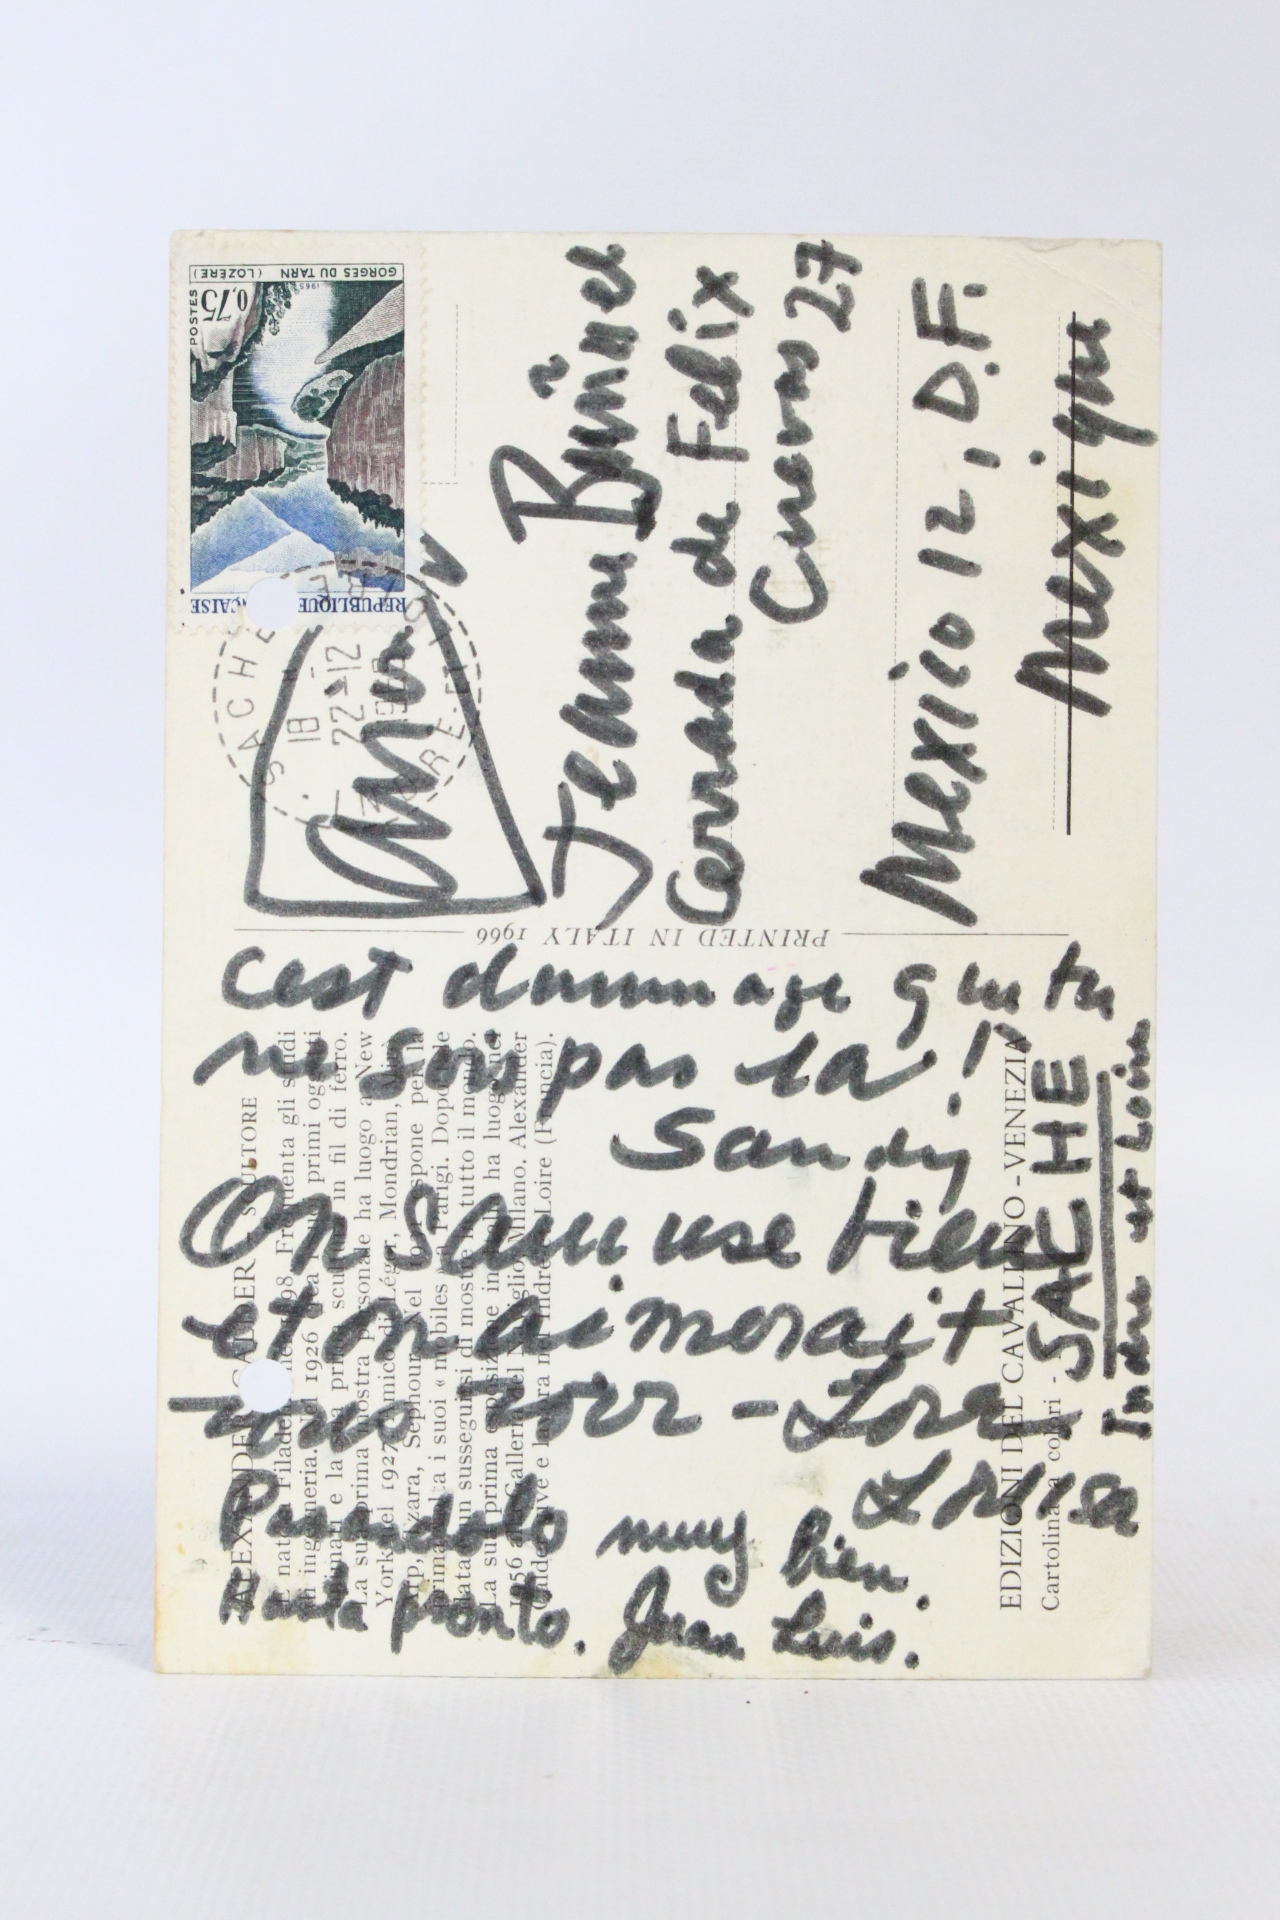 GORGES DU TARN (LOZÈRE)
POSTES
0,75
1965
REPUBLIQUE
SACHE
18 H
22-12
avion
Jeanne Buñuel
Cerrada de Felix
Cuevas 27
Mexico 12, D.F.
Mexique
PRINTED IN ITALY 1966
cest dummage que tu
ne sois pas la!
Sandy
On Samuse bien
et on aimerait
vous voir –
Louisa
Pasandolo muy bien.
Hasta pronto. Juan Luis.
SACHE
Indre et Loire
ALEXANDER CALDER - SCULTORE
È nato a Filadelfia nel 1898. Frequenta gli studi
di ingegneria. Nel 1926 crea i suoi primi oggetti
animati e la sua prima scultura in fil di ferro.
La sua prima mostra personale ha luogo a New
York nel 1927. Amico di Léger, Mondrian, Mirò,
Arp, Tzara, Sephour. Nel espone per la
prima volta i suoi « mobiles » a Parigi. Dopo tale
data è un susseguirsi di mostre in tutto il mondo.
La sua prima esposizione in Italia ha luogo nel
1956 alla Galleria del Naviglio, Milano. Alexander
Calder vive e lavora nell'Indre et Loire (Francia).
EDIZIONI DEL CAVALLINO - VENEZIA
Cartolina a colori -